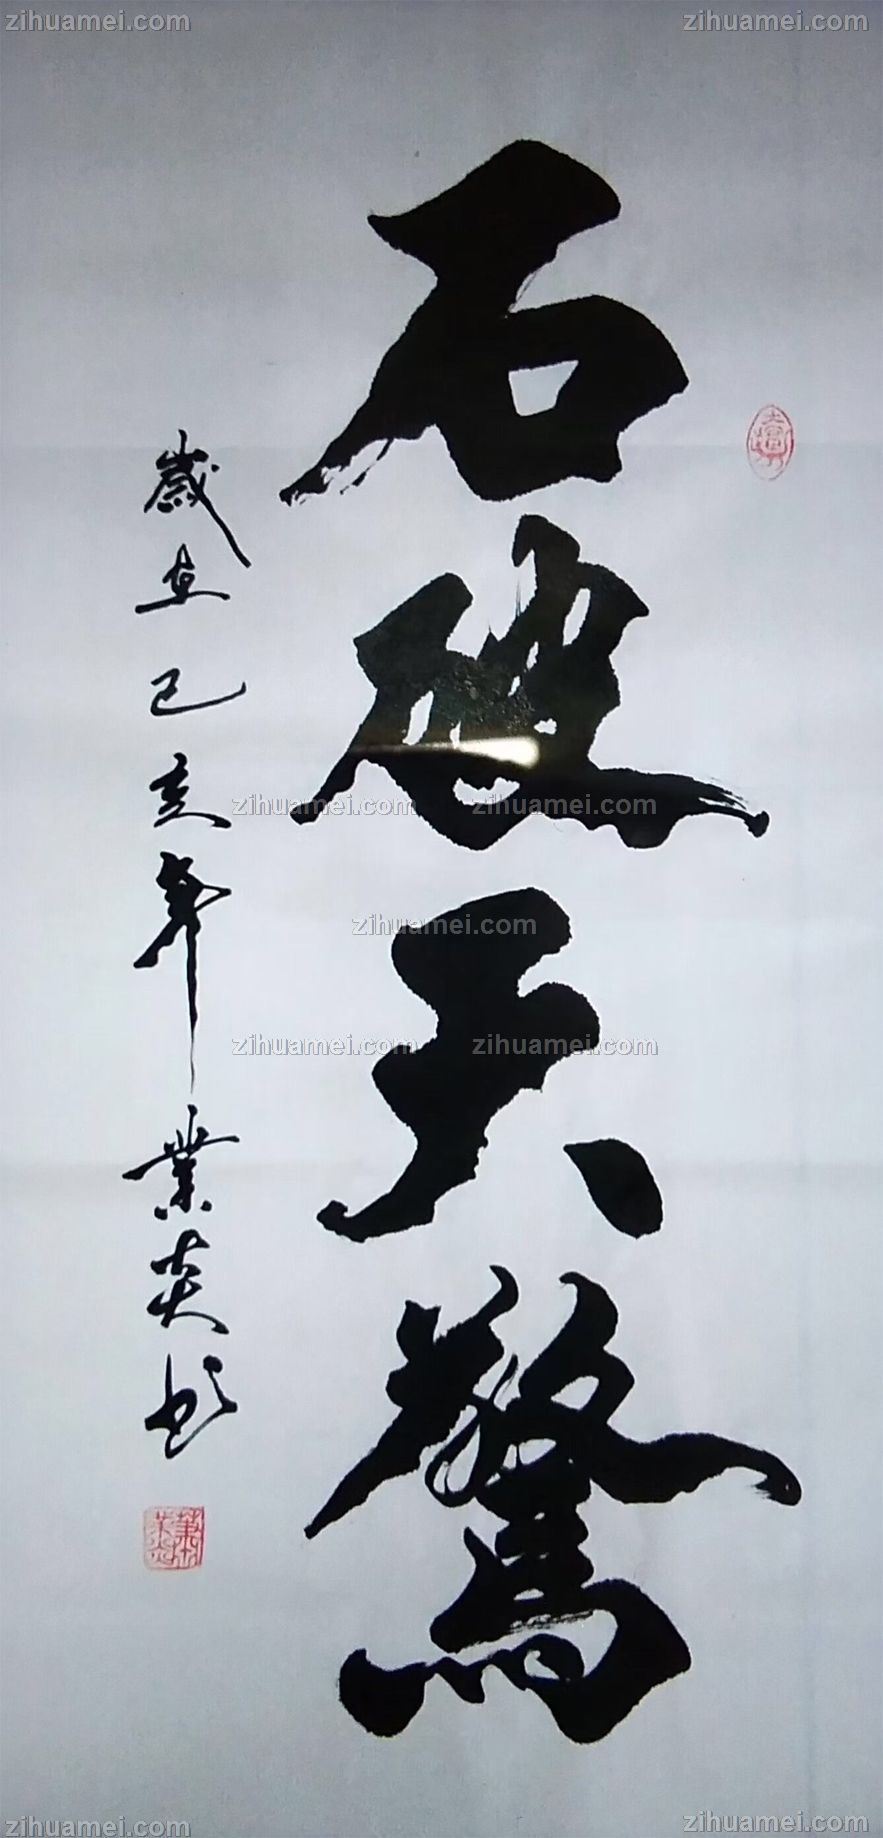 石破天驚
歲在己亥年業炎书
zihuamei.com
zihuamei.com
zihuamei.com
zihuamei.com
zihuamei.com
zihuamei.com
zihuamei.com
zihuamei.com
zihuamei.com